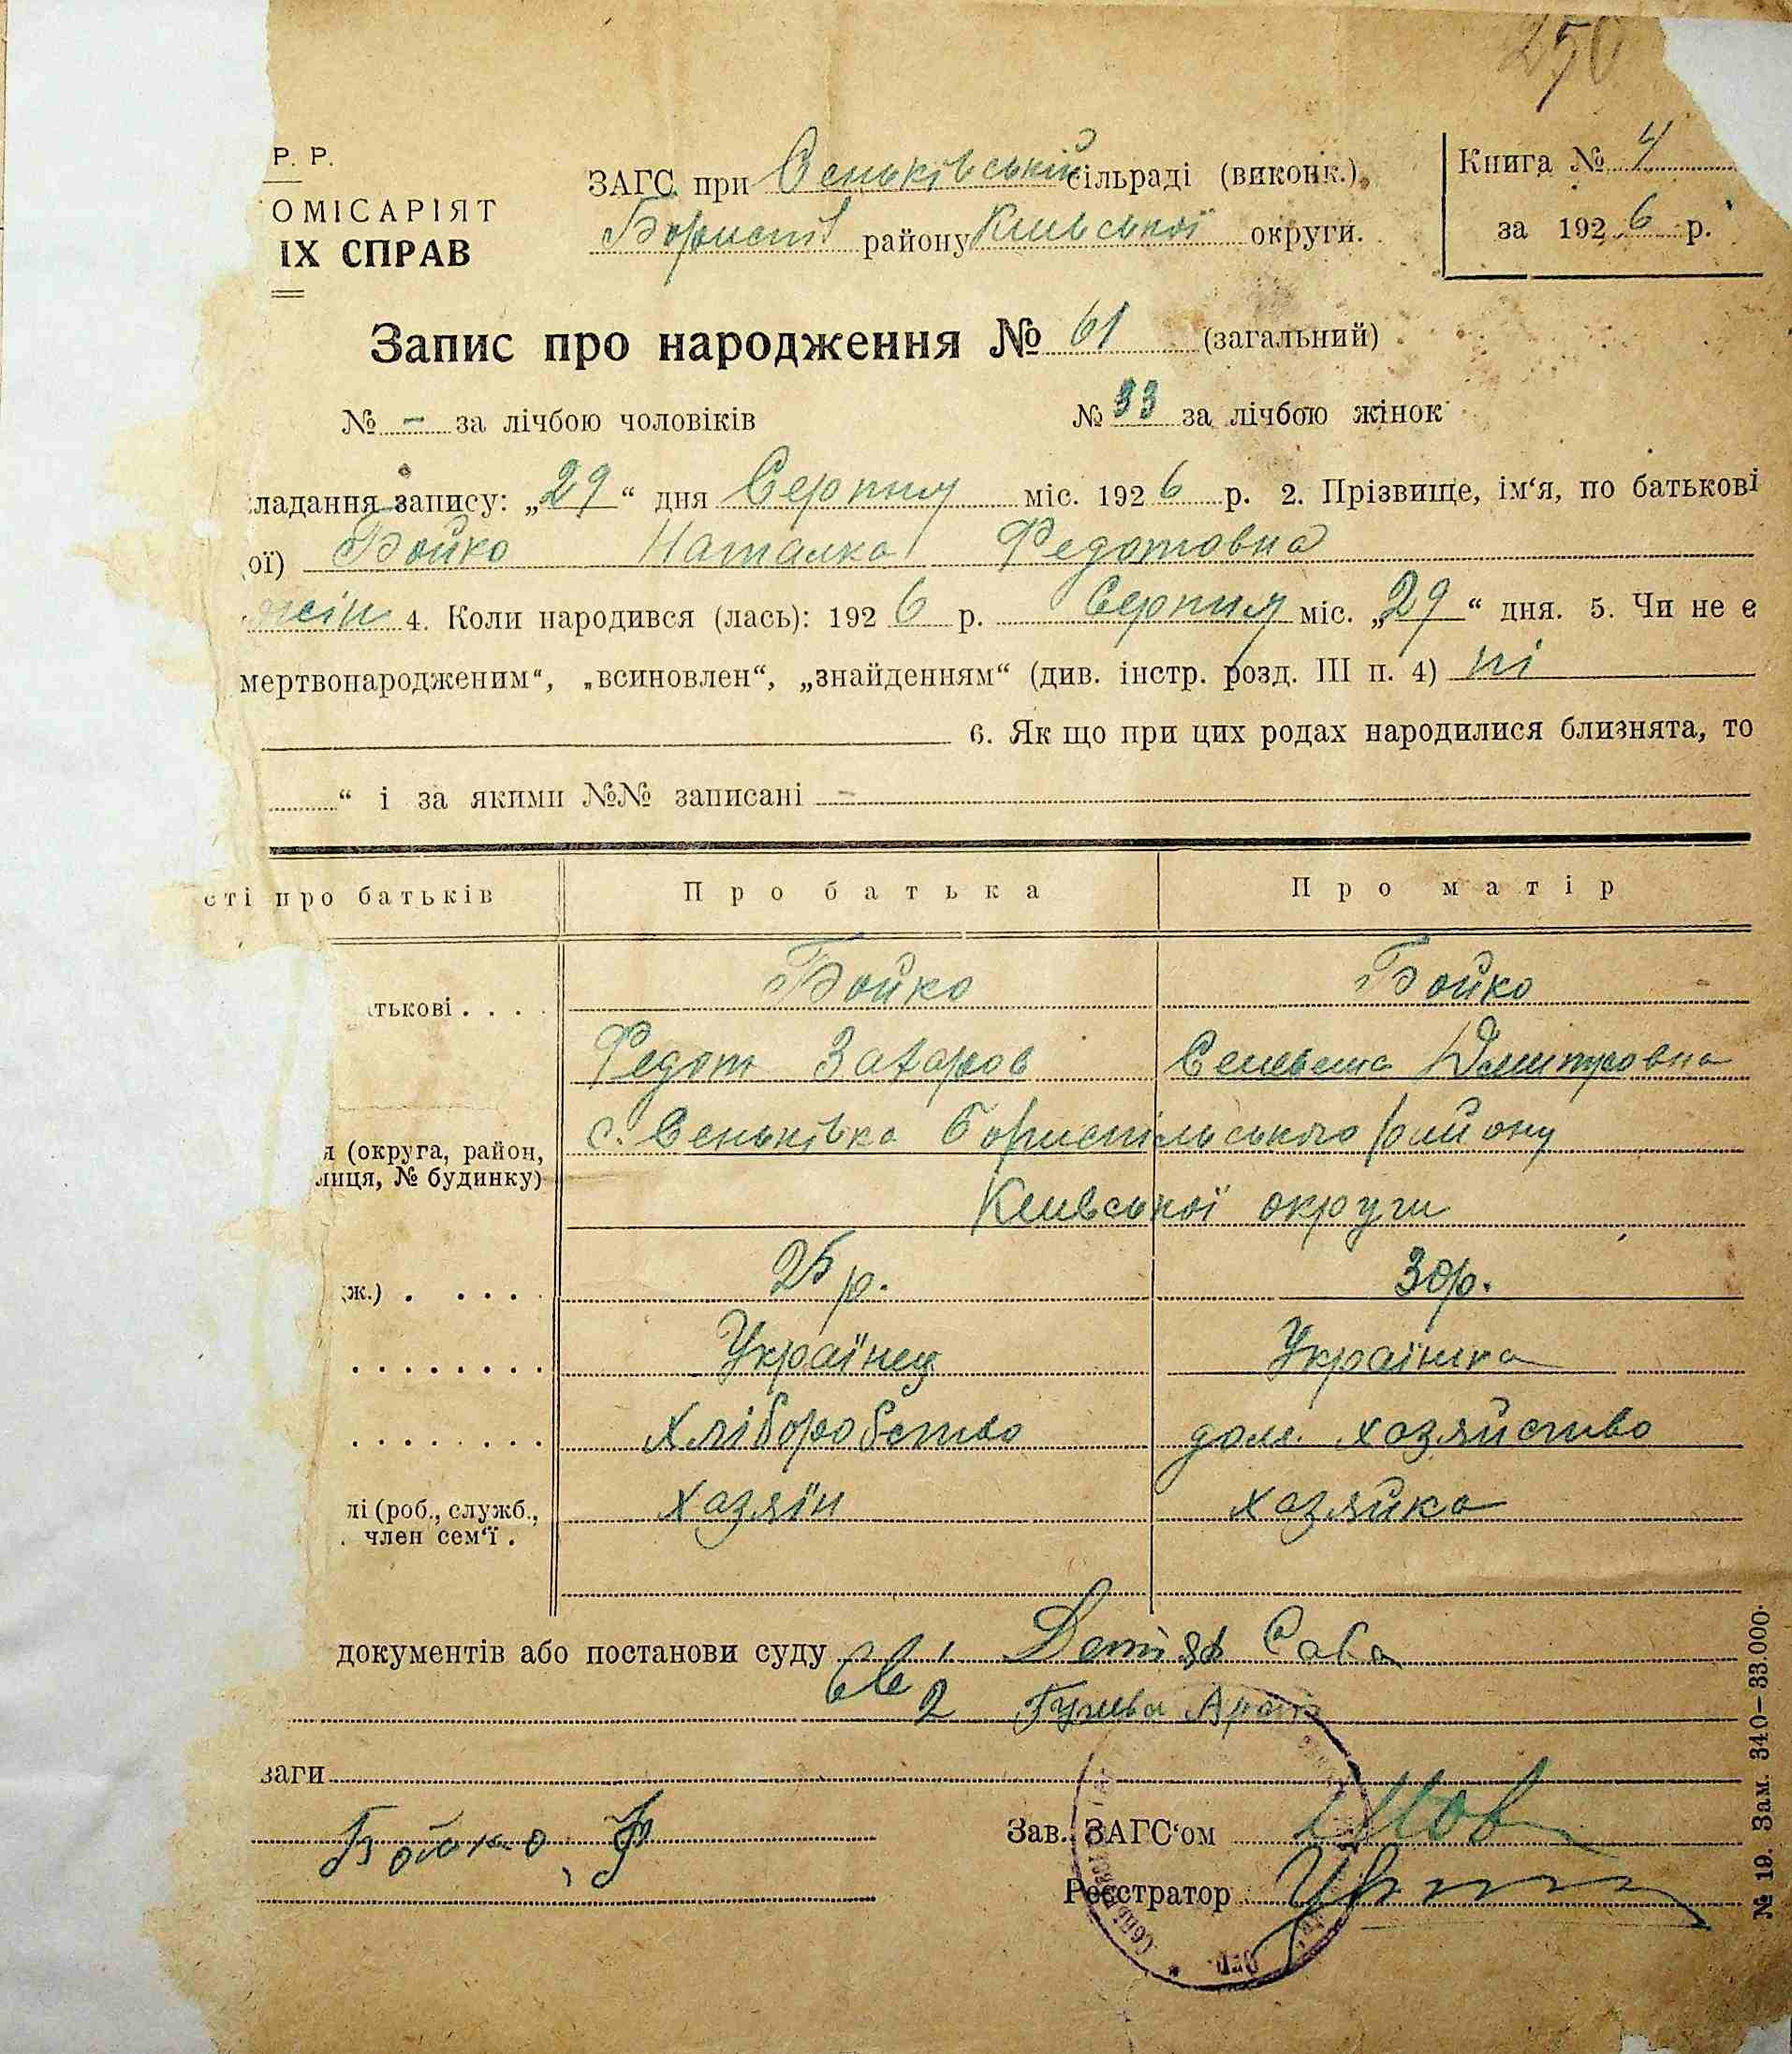 250
Р. Р.
ОМІСАРІЯТ
ІХ СПРАВ
ЗАГС при Сеньківській сільраді (виконк.)
Борисп району Київської округи.
Книга № 4
за 1926 р.
Запис про народження № 61 (загальний)
№ - за лічбою чоловіків № 33 за лічбою жінок
ладання запису: „29“ дня Серпня міс. 1926 р. 2. Прізвище, ім‘я, по батькові
ої) Бойко Наталка Федотовна
жін 4. Коли народився (лась): 1926 р. Серпня міс. „29“ дня. 5. Чи не є
мертвонародженим“, „всиновлен“, „знайденням“ (див. інстр. розд. III п. 4) ні
6. Як що при цих родах народилися близнята, то
“ і за якими №№ записані -
сті про батьків Про батька Про матір
тькові . . . . Бойко Бойко
Федот Захаров Дмитровна
я (округа, район, с. Сеньківка Бориспільського району
лиця, № будинку) Київської округи
ж.) . . . . . 25 р. 30 р.
. . . . . . . . Українец Українка
. . . . . . . . Хліборобство дом. хозяйство
лі (роб., служб., хазяїн хазяйка
. член сем‘ї .
документів або постанови суду св 1 Сава
св 2
ваги
Бойко Ф
Зав. ЗАГС‘ом
Реєстратор
№ 19. Зам. 340—33.000.